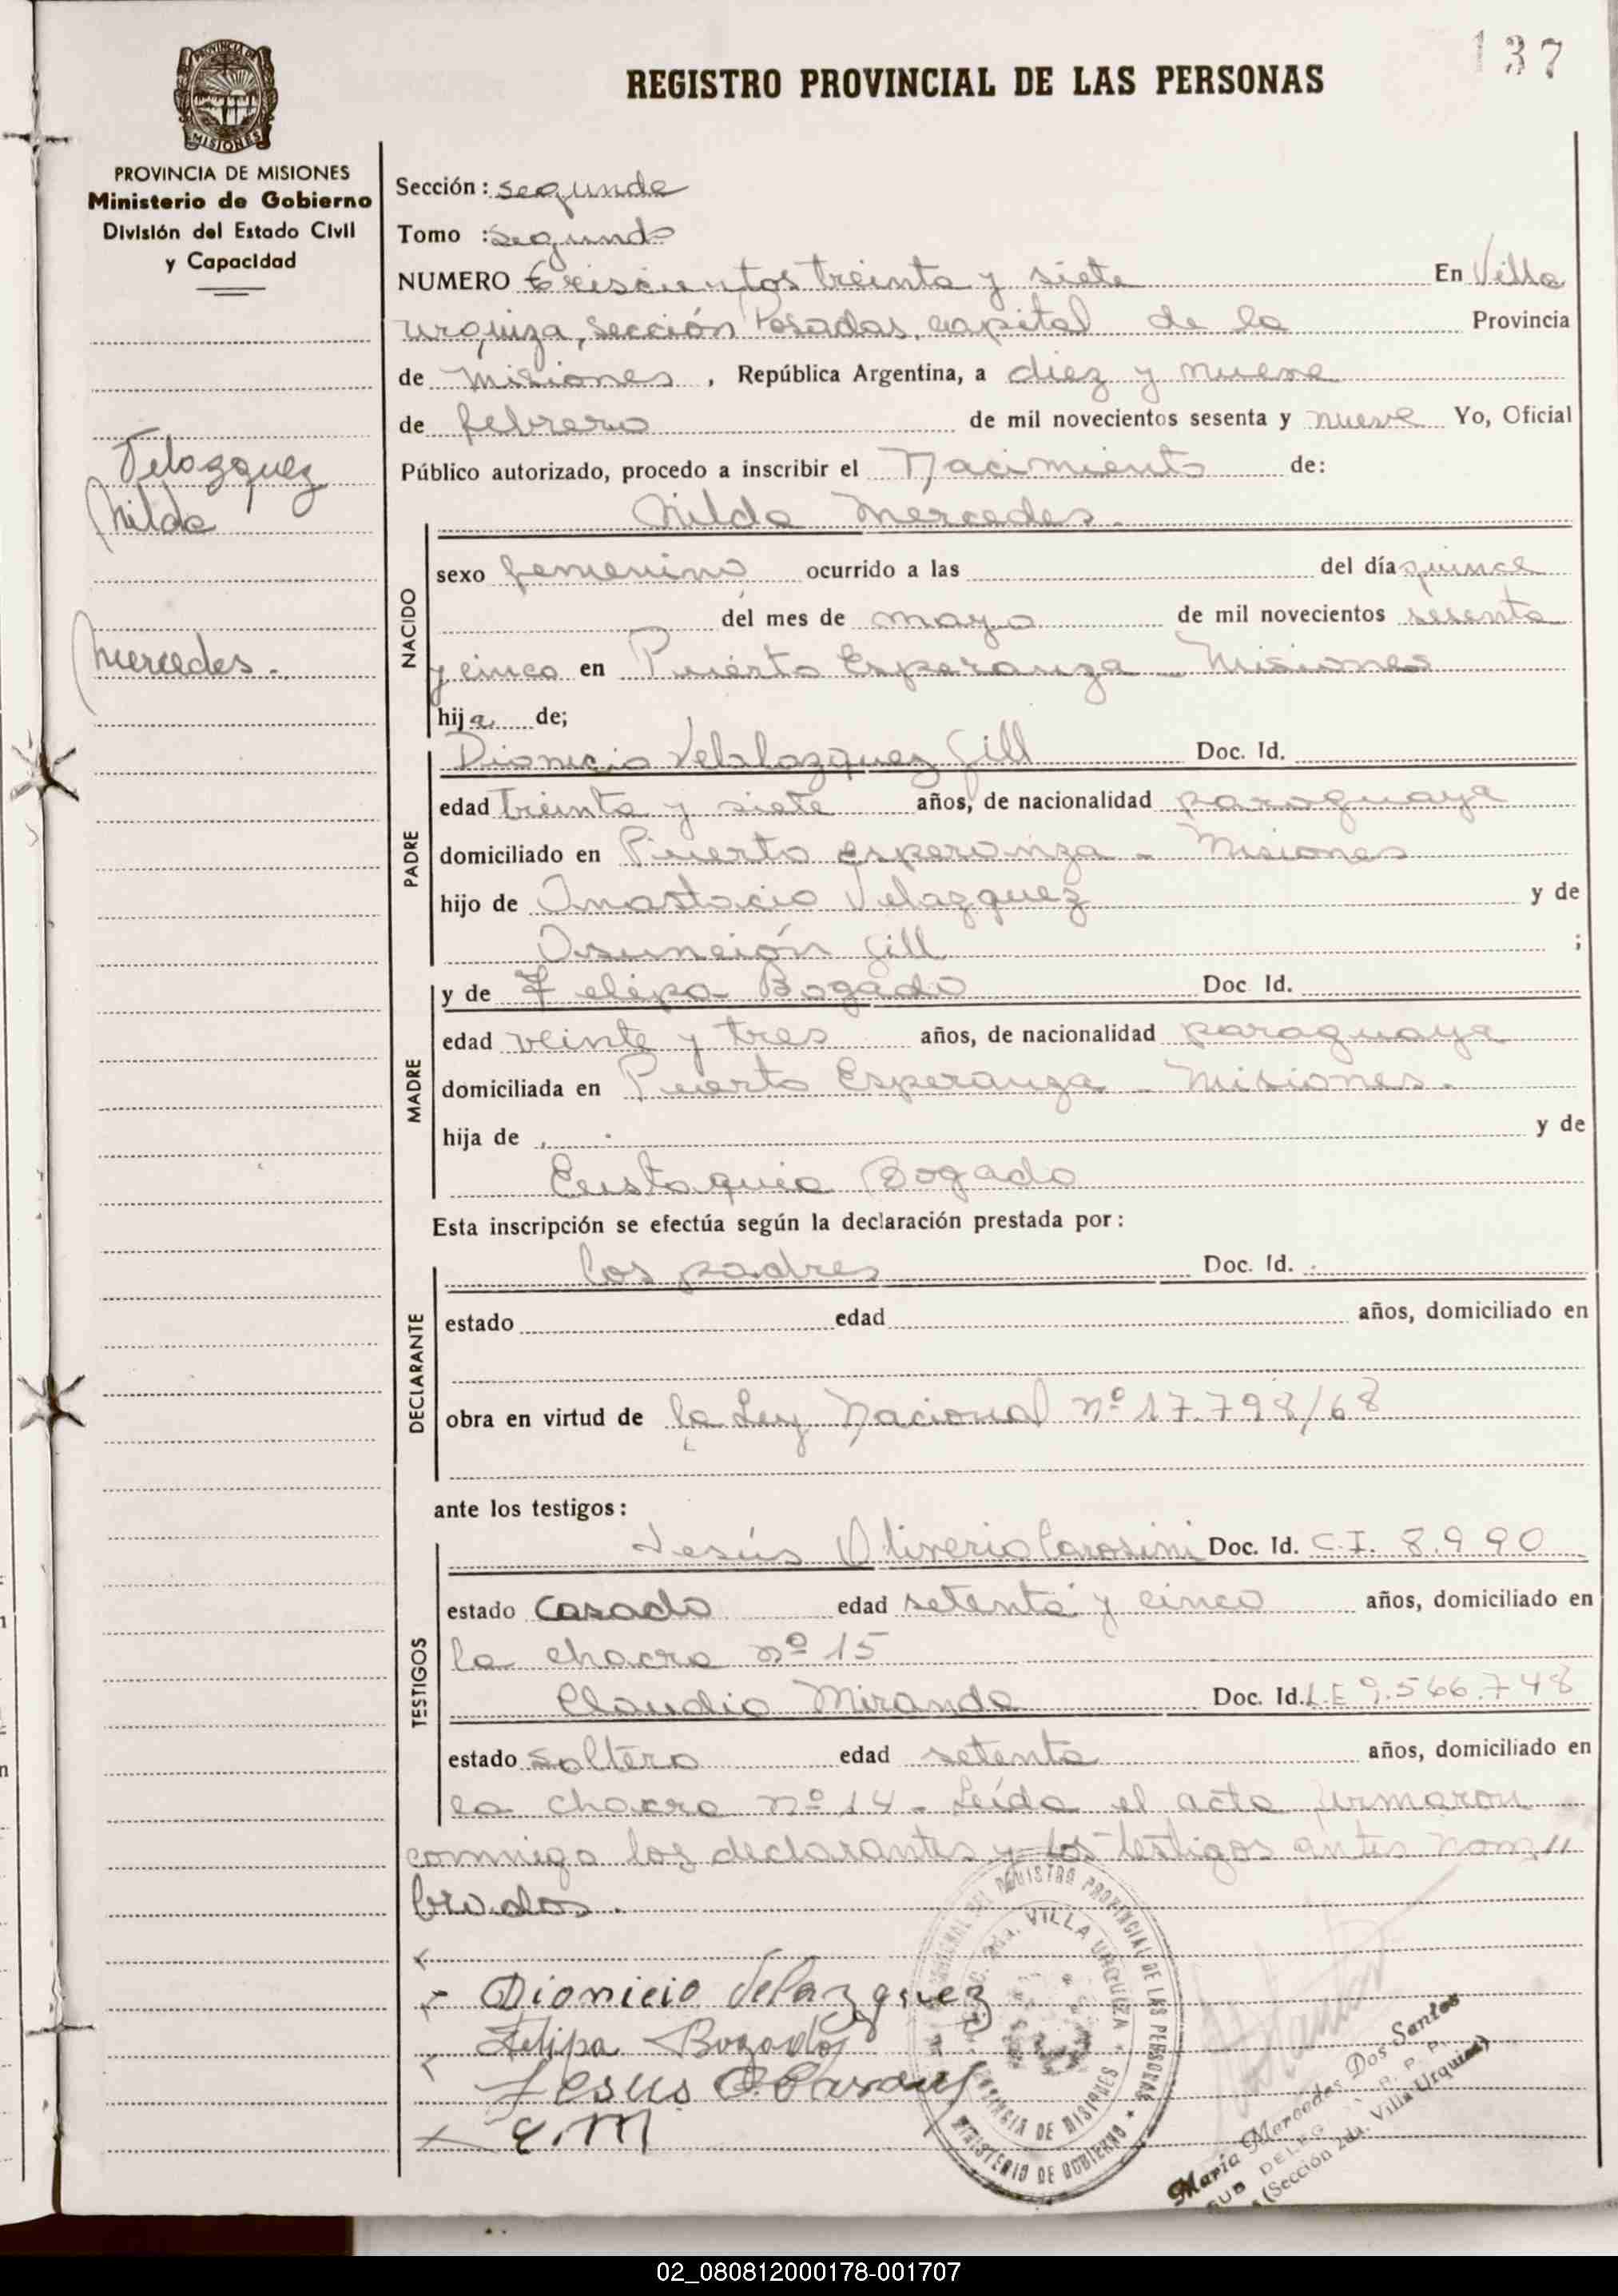 137
REGISTRO PROVINCIAL DE LAS PERSONAS
PROVINCIA DE MISIONES
Ministerio de Gobierno
División del Estado Civil
y Capacidad
Velazquez
Nilda
Mercedes.
Sección: segunda
Tomo : segundo
NUMERO treiscientos treinta y siete En Villa
urquiza, sección Posadas, capital de la Provincia
de Misiones, República Argentina, a diez y nueve
de febrero de mil novecientos sesenta y nueve Yo, Oficial
Público autorizado, procedo a inscribir el Nacimiento de:
Nilda Mercedes.
NACIDO
sexo femenino ocurrido a las del día quince
del mes de mayo de mil novecientos sesenta
y cinco en Puerto Esperanza - Misiones
hija de;
PADRE
Dionicio Velalazquez Gill Doc. Id.
edad treinta y siete años, de nacionalidad paraguaya
domiciliado en Puerto esperanza - Misiones
hijo de Anastacio Velazquez y de
Asunción Gill ;
MADRE
y de Felipa Bogado Doc Id.
edad veinte y tres años, de nacionalidad paraguaya
domiciliada en Puerto Esperanza - Misiones.
hija de y de
Eustaquia Bogado
Esta inscripción se efectúa según la declaración prestada por:
DECLARANTE
los padres Doc. Id.
estado edad años, domiciliado en
obra en virtud de la Ley Nacional nº 17.798/68
ante los testigos:
TESTIGOS
Jesús Oliverio Carosini Doc. Id. C.I. 8.990
estado Casado edad setenta y cinco años, domiciliado en
la chacra nº 15
Claudio Miranda Doc. Id. L.E 9.566.748
estado soltero edad setenta años, domiciliado en
la chacra nº 14 - Leída el acta firmaron
conmigo los declarantes y los testigos antes nom//
brados.
Dionicio Velazquez
Felipa Bogado
Jesus O.
C.M
REGISTRO PROVINCIAL DE LAS PERSONAS
2da. VILLA URQUIZA
PROVINCIA DE MISIONES
MINISTERIO DE GOBIERNO
María Mercedes Dos Santos
SUB DELEG R. P. P.
(Sección 2da. Villa Urquiza)
02_080812000178-001707